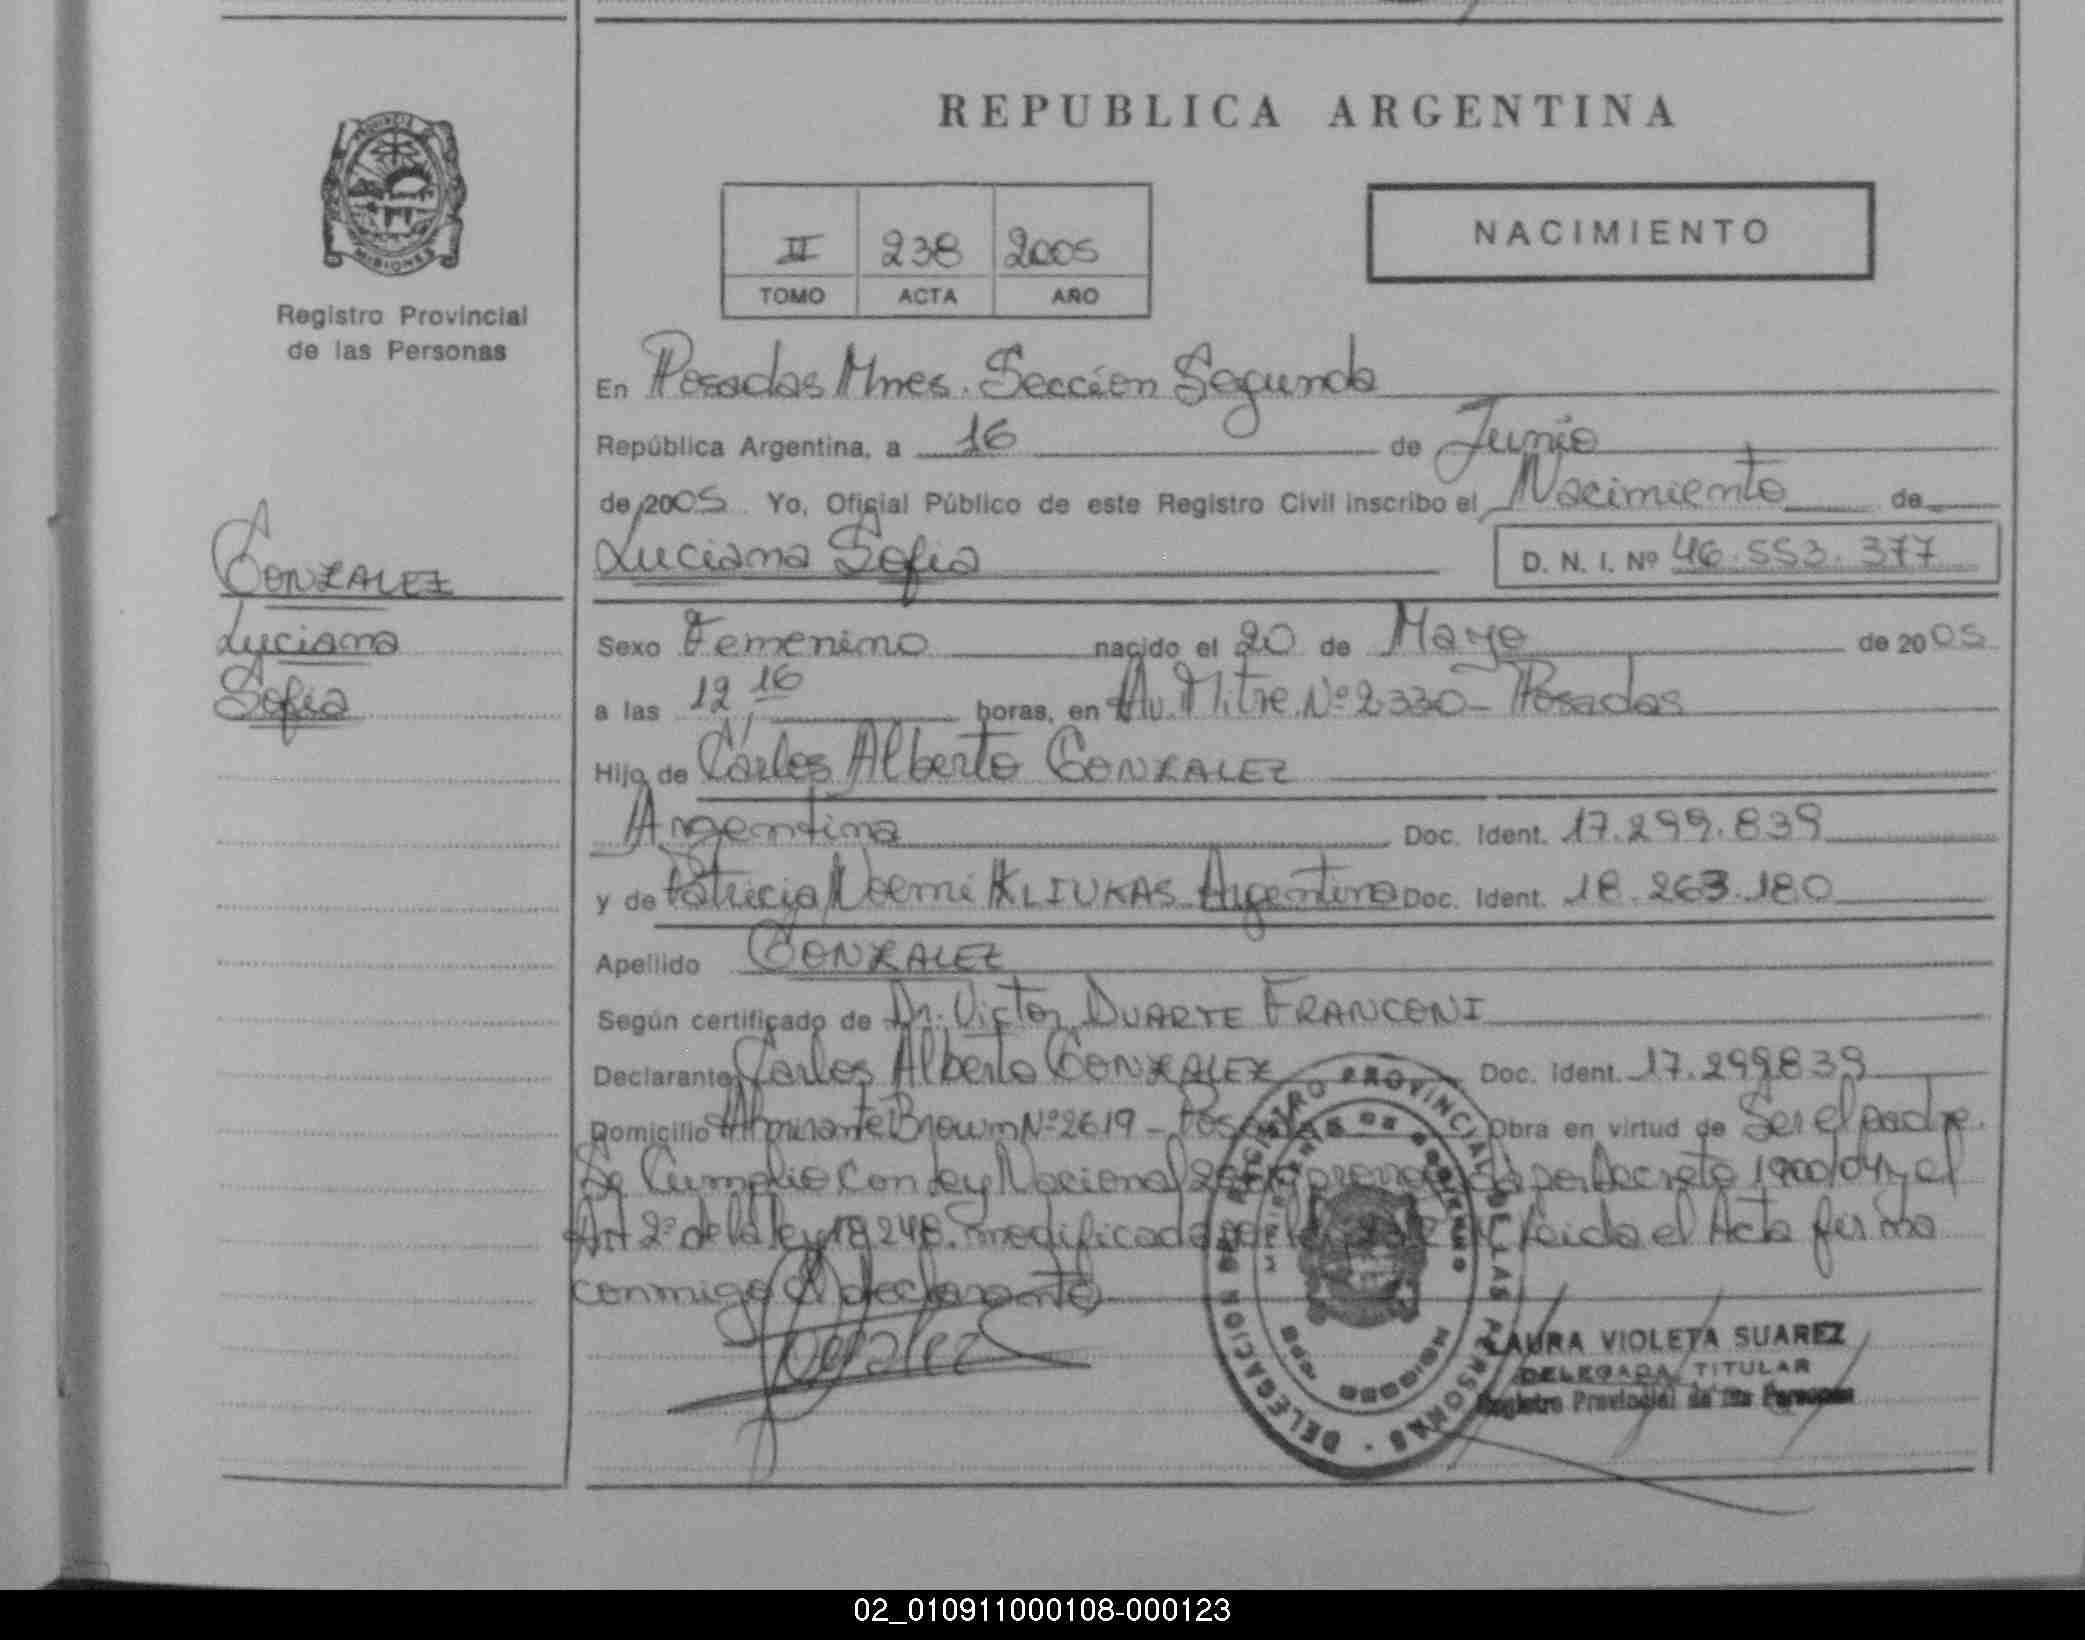 REPUBLICA ARGENTINA
II 238 2005
TOMO ACTA AÑO
NACIMIENTO
PROVINCIA
MISIONES
Registro Provincial
de las Personas
En Posadas Mnes. Sección Segunda
República Argentina, a 16 de Junio
de 2005 Yo, Oficial Público de este Registro Civil inscribo el Nacimiento de
Luciana Sofia D. N. I. Nº 46.553.377
GONZALEZ
Luciana
Sofia
Sexo Femenino nacido el 20 de Mayo de 2005
a las 12 16 horas, en Av. Mitre Nº 2330 - Posadas
Hijo de Carlos Alberto GONZALEZ
Argentina Doc. Ident. 17.299.839
y de Patricia Noemi KLIUKAS Argentina Doc. Ident. 18.263.180
Apellido GONZALEZ
Según certificado de Dr. Victor DUARTE FRANCONI
Declarante Carlos Alberto GONZALEZ Doc. Ident. 17.299839
Domicilio Almirante Brown Nº 2619 - Obra en virtud de Ser el padre.
Se Cumplio con Ley Nacional por Decreto 1900/04 y el
Art 2º de la Ley 18.248. modificada Leida el Acta firma
conmigo el declarante
Gonzalez
REGISTRO PROVINCIAL DE LAS PERSONAS · DELEGACION
LAURA VIOLETA SUAREZ
DELEGADA TITULAR
Registro Provincial de las Personas
02_010911000108-000123